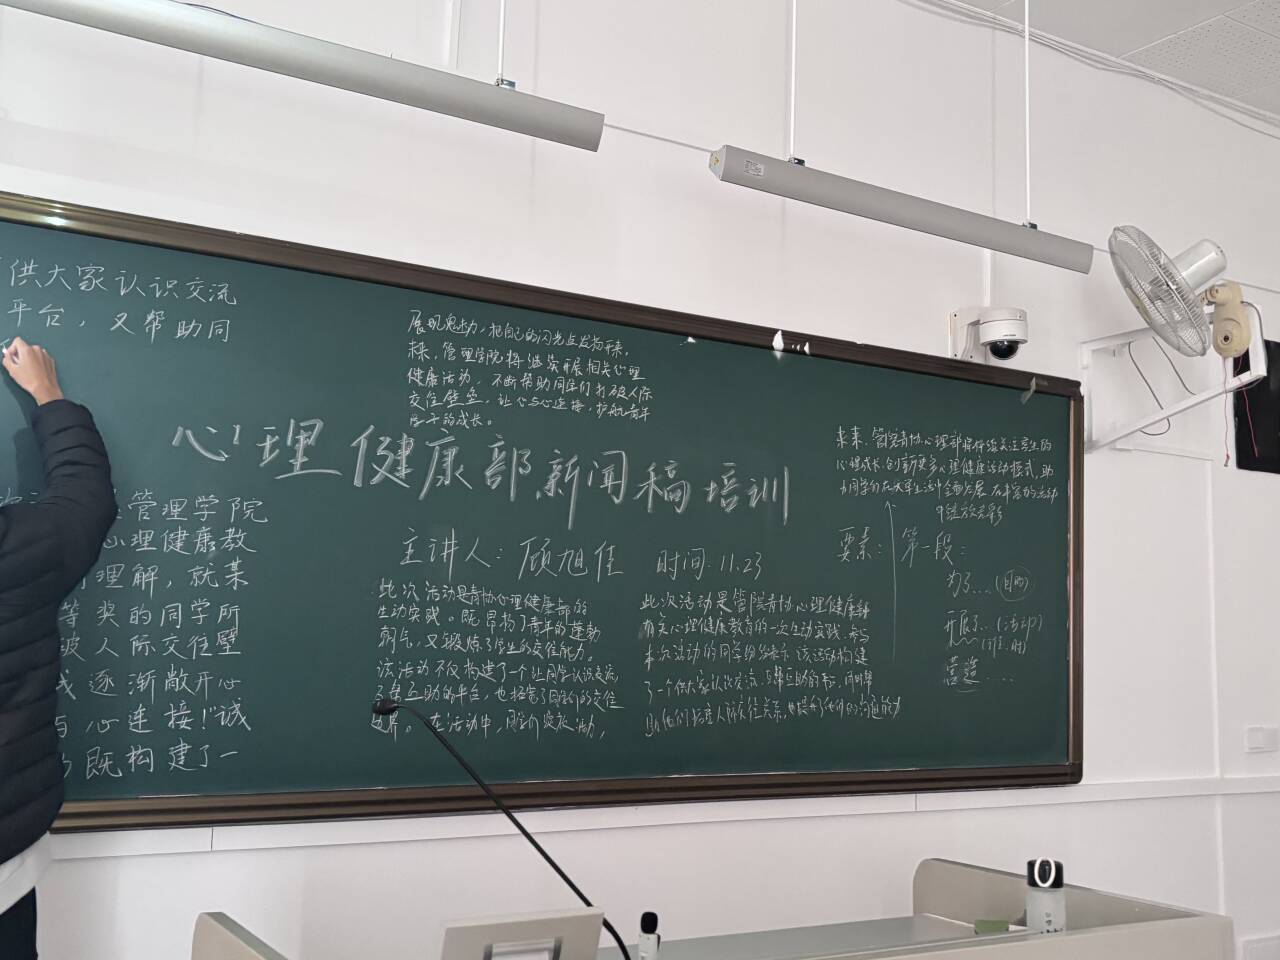 供大家认识交流
平台，又帮助同
展现魅力，把自己的闪光点发扬开来，
未来，管理学院将继续开展相关心理
健康活动，不断帮助同学们打破人际
交往壁垒，让心与心连接，护航青年
学子的成长。
心理健康部新闻稿培训
主讲人：顾旭佳 时间：11.23
管理学院
心理健康教
理解，就某
等奖的同学所
破人际交往壁
逐渐敞开心
与心连接！"诚
既构建了一
此次活动是青协心理健康部的
生动实践。既昂扬了青年的蓬勃
朝气，又锻炼了学生的交往能力。
该活动不仅构建了一个让同学认识交流
互帮互助的平台，也拓宽了同学们的交往
边界。在活动中，同学们积极活动，
此次活动是管院青协心理健康部
有关心理健康教育的一次生动实践，参与
本次活动的同学纷纷表示该活动构建
了一个供大家认识交流，互帮互助的平台，同时帮
助他们拓宽人际交往关系，也提升了他们的沟通能力
未来，管院青协心理部将继续关注学生的
心理成长，创新更多心理健康活动模式，助
力同学们在大学生活中全面发展，在丰富的活动
中绽放光彩
要素：第一段：
为了…（目的）
开展了…（活动）
（注，时）
营造……